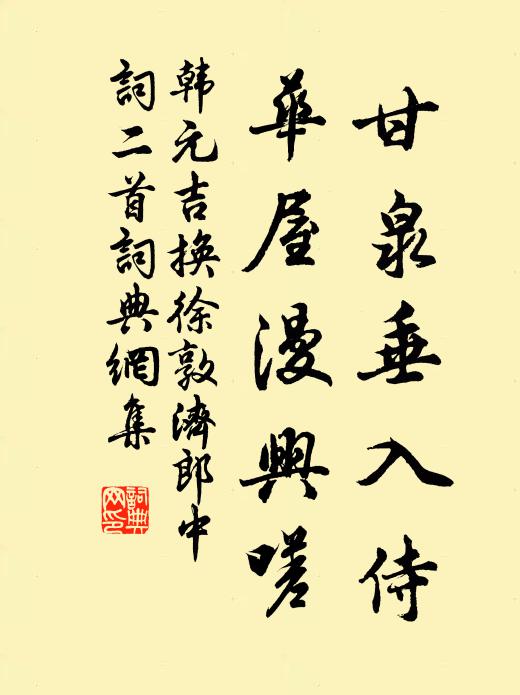 甘泉垂入侍
華屋漫興嗟
韩元吉换徐敦濟郎中
詞二首詞典網集
詞典網印